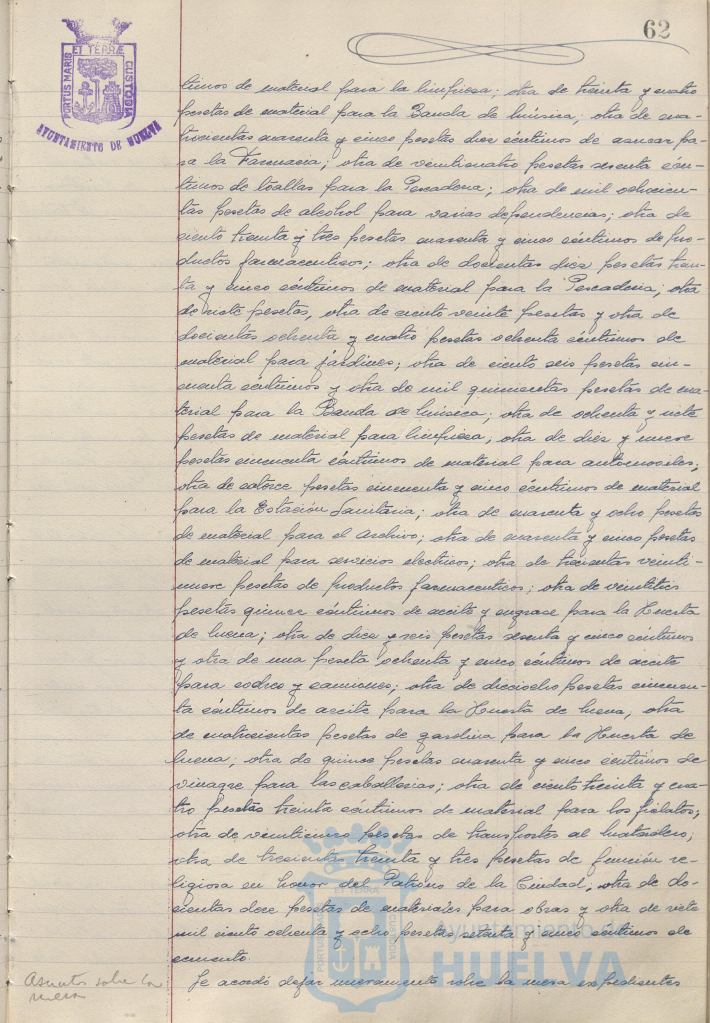 62
ET TERRÆ
PORTUS MARIS
CUSTODIA
AYUNTAMIENTO DE HUELVA
timos de material para la limpiesa; otra de treinta y cuatro
pesetas de material para la Banda de música; otra de cua-
trocientas cuarenta y cinco pesetas diez céntimos de azucar pa-
ra la Farmacia; otra de veinticuatro pesetas sesenta cén-
timos de toallas para la Pescaderia; otra de mil ochocien-
tas pesetas de alcohol para varias dependencias; otra de
ciento treinta y tres pesetas cuarenta y cinco céntimos de pro-
ductos farmaceuticos; otra de doscientas diez pesetas trein-
ta y cinco céntimos de material para la Pescaderia; otra
de siete pesetas, otra de ciento veinte pesetas y otra de
doscientas ochenta y cuatro pesetas ochenta céntimos de
material para jardines; otra de ciento seis pesetas cin-
cuenta céntimos y otra de mil quinientas pesetas de ma-
terial para la Banda de música; otra de ochenta y siete
pesetas de material para limpiesa; otra de diez y nueve
pesetas cincuenta céntimos de material para automoviles;
otra de catorce pesetas cincuenta y cinco céntimos de material
para la Estación Sanitaria; otra de cuarenta y ocho pesetas
de material para el Archivo; otra de cuarenta y cinco pesetas
de material para servicios electricos; otra de trescientas veinti-
nueve pesetas de productos farmaceuticos; otra de veintitres
pesetas quince céntimos de aceite y engrase para la Huerta
de Mena; otra de diez y seis pesetas sesenta y cinco céntimos
y otra de una peseta ochenta y cinco céntimos de aceite
para coches y camiones; otra de dieciocho pesetas cincuen-
ta céntimos de aceite para la Huerta de Mena, otra
de cuatrocientas pesetas de gasolina para la Huerta de
Mena; otra de quince pesetas cuarenta y cinco céntimos de
vinagre para las caballerias; otra de ciento treinta y cua-
tro pesetas treinta céntimos de material para los fielatos;
otra de veinticinco pesetas de transportes al Matadero;
otra de trescientas treinta y tres pesetas de función re-
ligiosa en honor del Patrono de la Ciudad, otra de do-
cientas doce pesetas de materiales para obras y otra de siete
mil ciento ochenta y ocho pesetas setenta y cinco céntimos de
cemento.
Asuntos sobre la
mesa
Se acordó dejar nuevamente sobre la mesa expedientes
ayuntamiento de
HUELVA